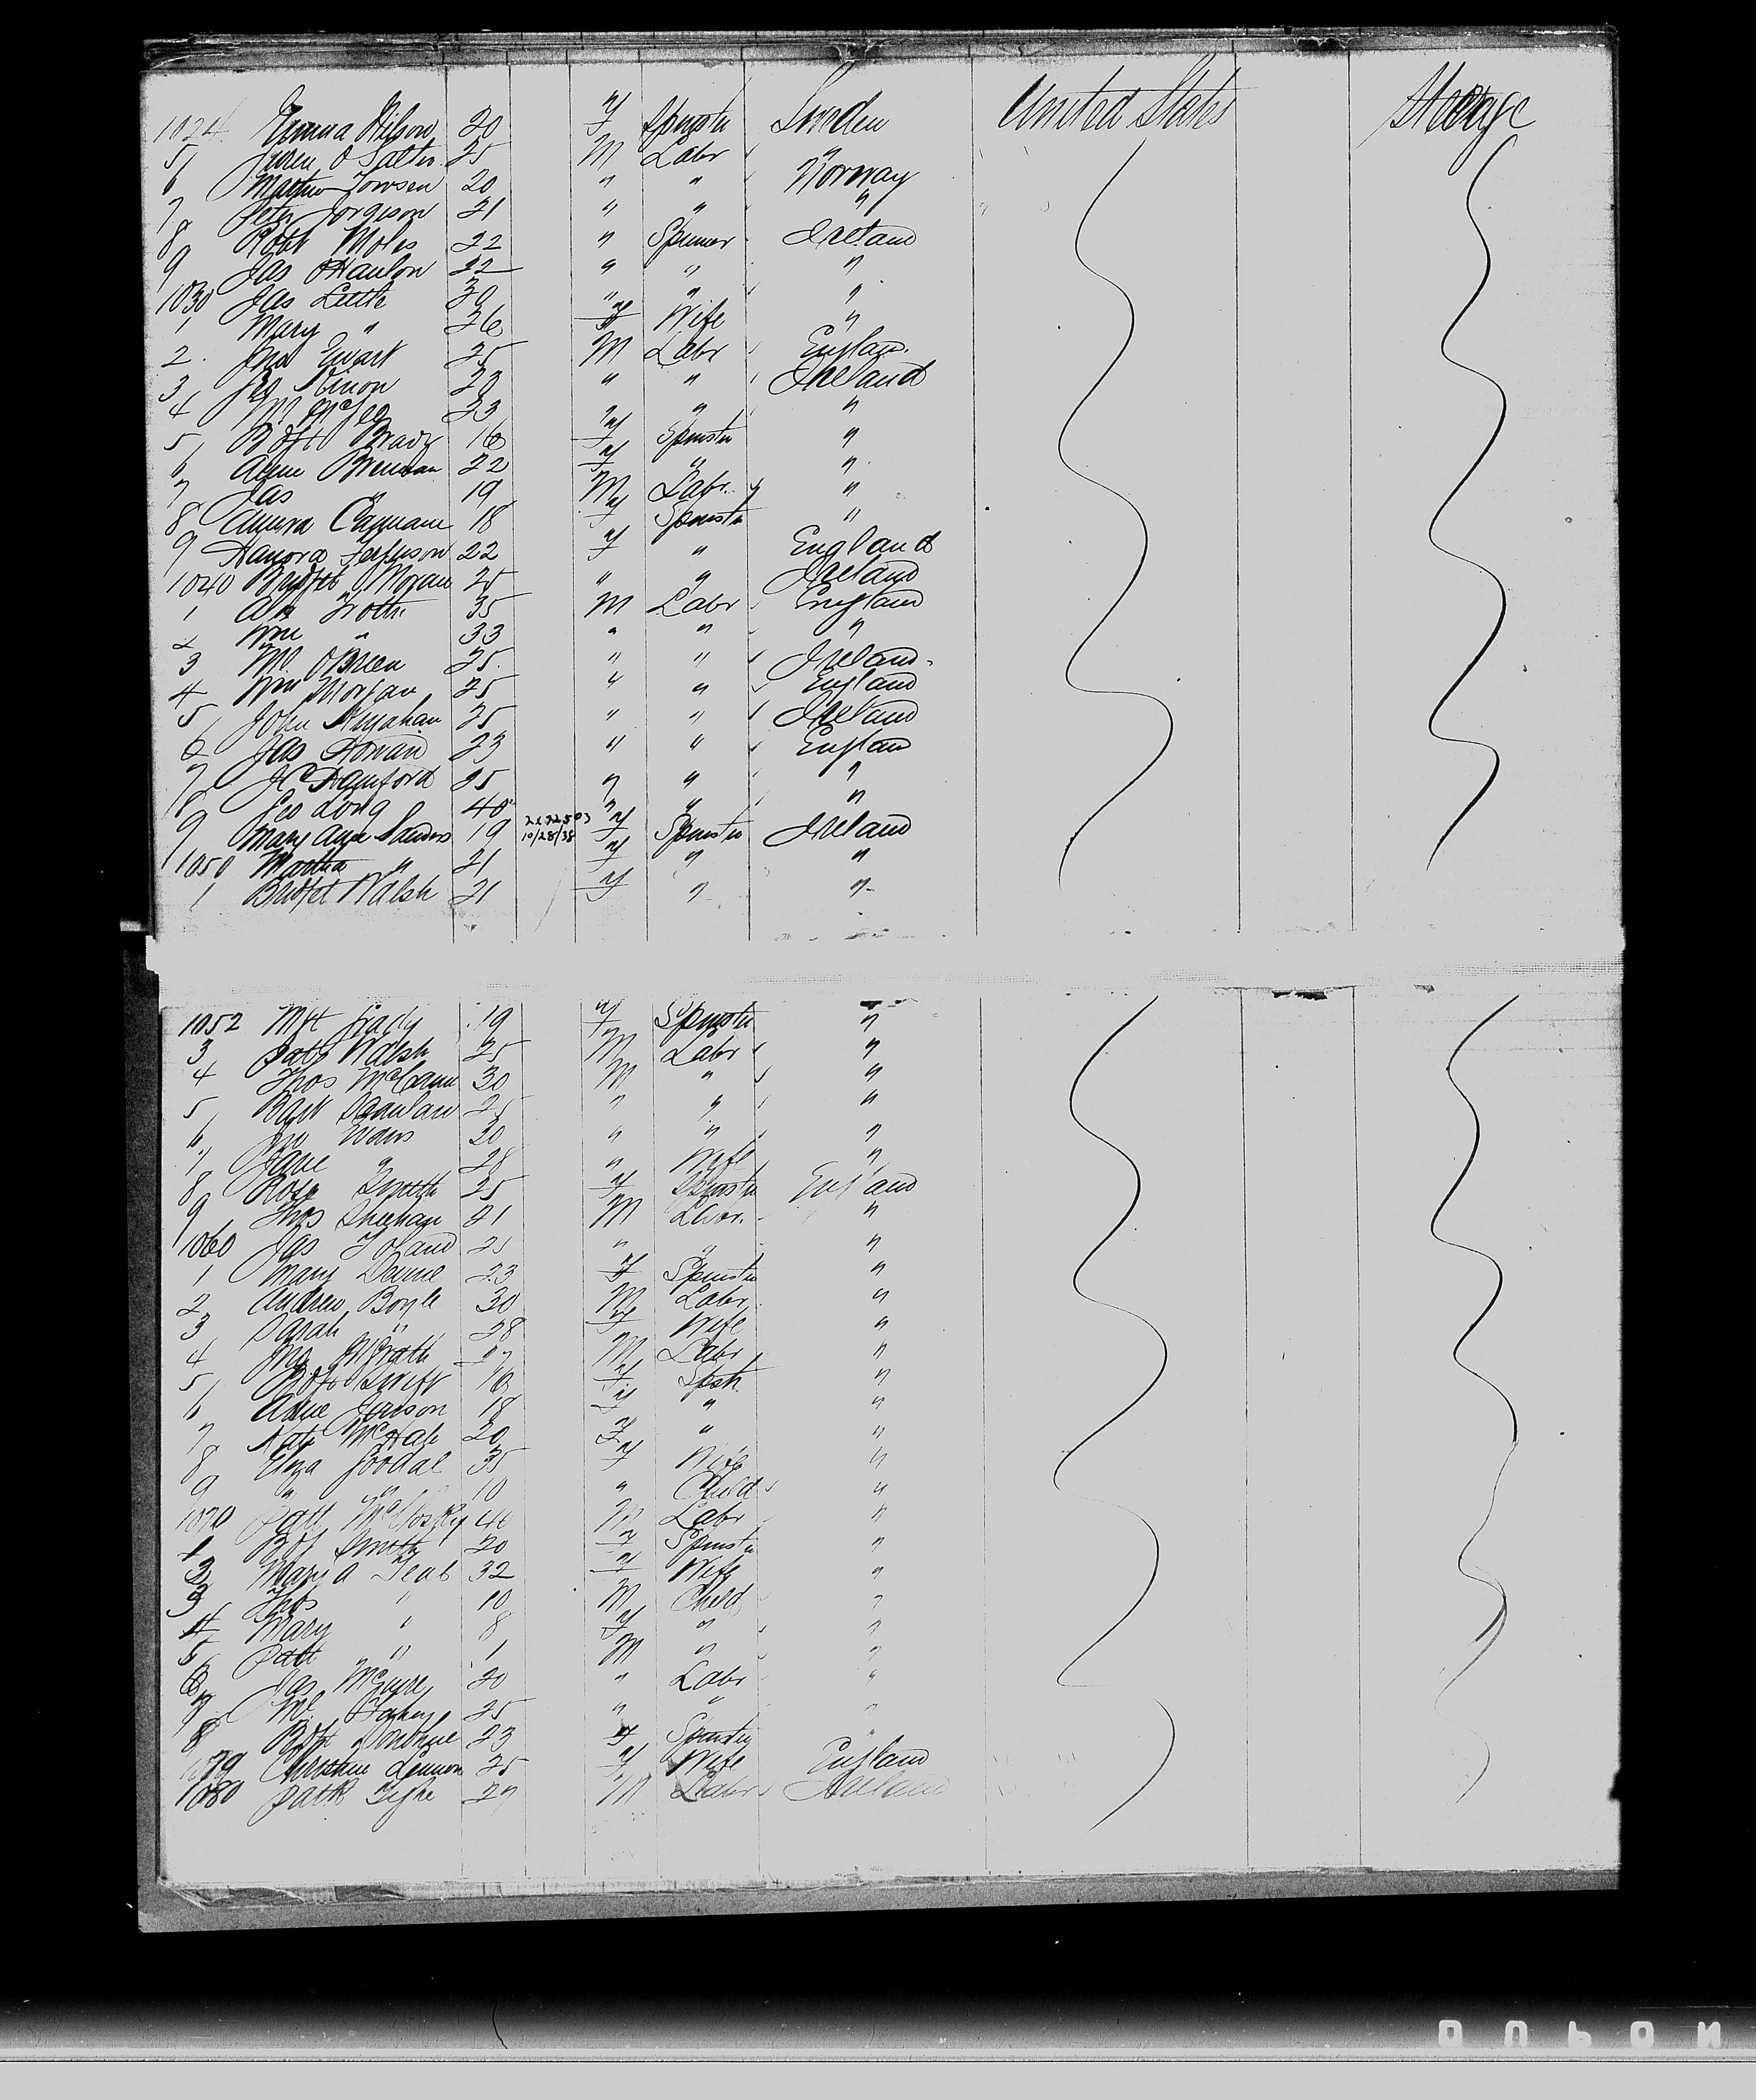 1024 Emma Nilson 20 F Spinstr Sweden United States Steerage
5 O Salter 25 M Labr "
6 20 " " Norway
7 Peter Jorgison 21 " " "
8 Robt Moles 22 " Spinner Ireland
9 Jas Hanlon 22 " " "
1030 Jas Little 30 " " "
1 Mary " 26 F Wife "
2 Jno Ewart 25 M Labr Englan
3 Jas 20 " " Ireland
4 Ml McGee 23 " " "
5 Bdgt Brady 16 F Spinstr "
6 Anne Brennan 22 F " "
7 Jas " 19 M Labr "
8 18 F Spinstr "
9 Hanora Ferguson 22 F " England
1040 Bridget Morgan 25 " " Ireland
1 35 M Labr England
2 Wm " 33 " " "
3 Ml. OBrien 25 " " Ireland
4 Wm Morgan 25 " " England
5 John 25 " " Ireland
6 Jas Howard 23 " " England
7 25 " " "
8 Geo Long 40 " " "
9 Mary Ann Sanders 19 10/28/38 F Spinstr Ireland
1050 Martha " 21 F " "
1 Bridget Walsh 21 F " "
1052 Mgt Grady 19 F Spinstr "
3 Patk Walsh 25 M Labr "
4 Thos McCann 30 M " "
5 Hanlan 25 " " "
6 Jno 30 " " "
7 Jane " 28 " Wife "
8 Rose Smith 25 F Spinstr England
9 Thos Sheehan 21 M Labr. "
1060 Jas Toland 25 " " "
1 Mary Devine 23 F Spinstr "
2 Andrew Boyle 30 M Labr "
3 Sarah " 28 F Wife "
4 Jno McGrath 27 M Labr "
5 Bdgt Swift 16 F Spstr "
6 Anne 18 F " "
7 Kate McHale 20 F " "
8 Eliza Goodal 35 F Wife "
9 " " 10 " Child "
1070 Patt McClosky 40 M Labr "
1 Bdgt Smith 20 F Spinstr "
2 Mary A 32 F Wife "
3 Thos " 10 M Child "
4 Mary " 8 F " "
5 Patt " 1 M " "
6 Jas McGuire 20 " Labr "
7 Ml Fahey 25 " " "
8 Bdgt Donohue 23 F Spinstr "
1079 Christine Lennon 25 F Wife England
1080 Patk Tighe 27 M Labr Ireland